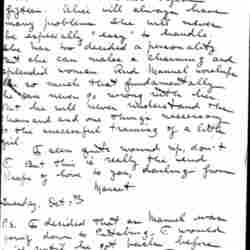 fifteen. Alice will always have
many problems. She will never
be especially "easy" to handle.
She has too decided a personality
but she can make a charming and
splendid woman. And Manuel worships
her so much that fundamentally
it can never go wrong with her
but he will never understand the
thousand and one things necessary
to the successful training of a little
girl.
I seem quite wound up, don't
I. But this is really the end
Heaps of love to you darling from
Margaret
Sunday, Oct. 5th
P.S. I decided that as Manuel was
going down to I would
wait until he got back before